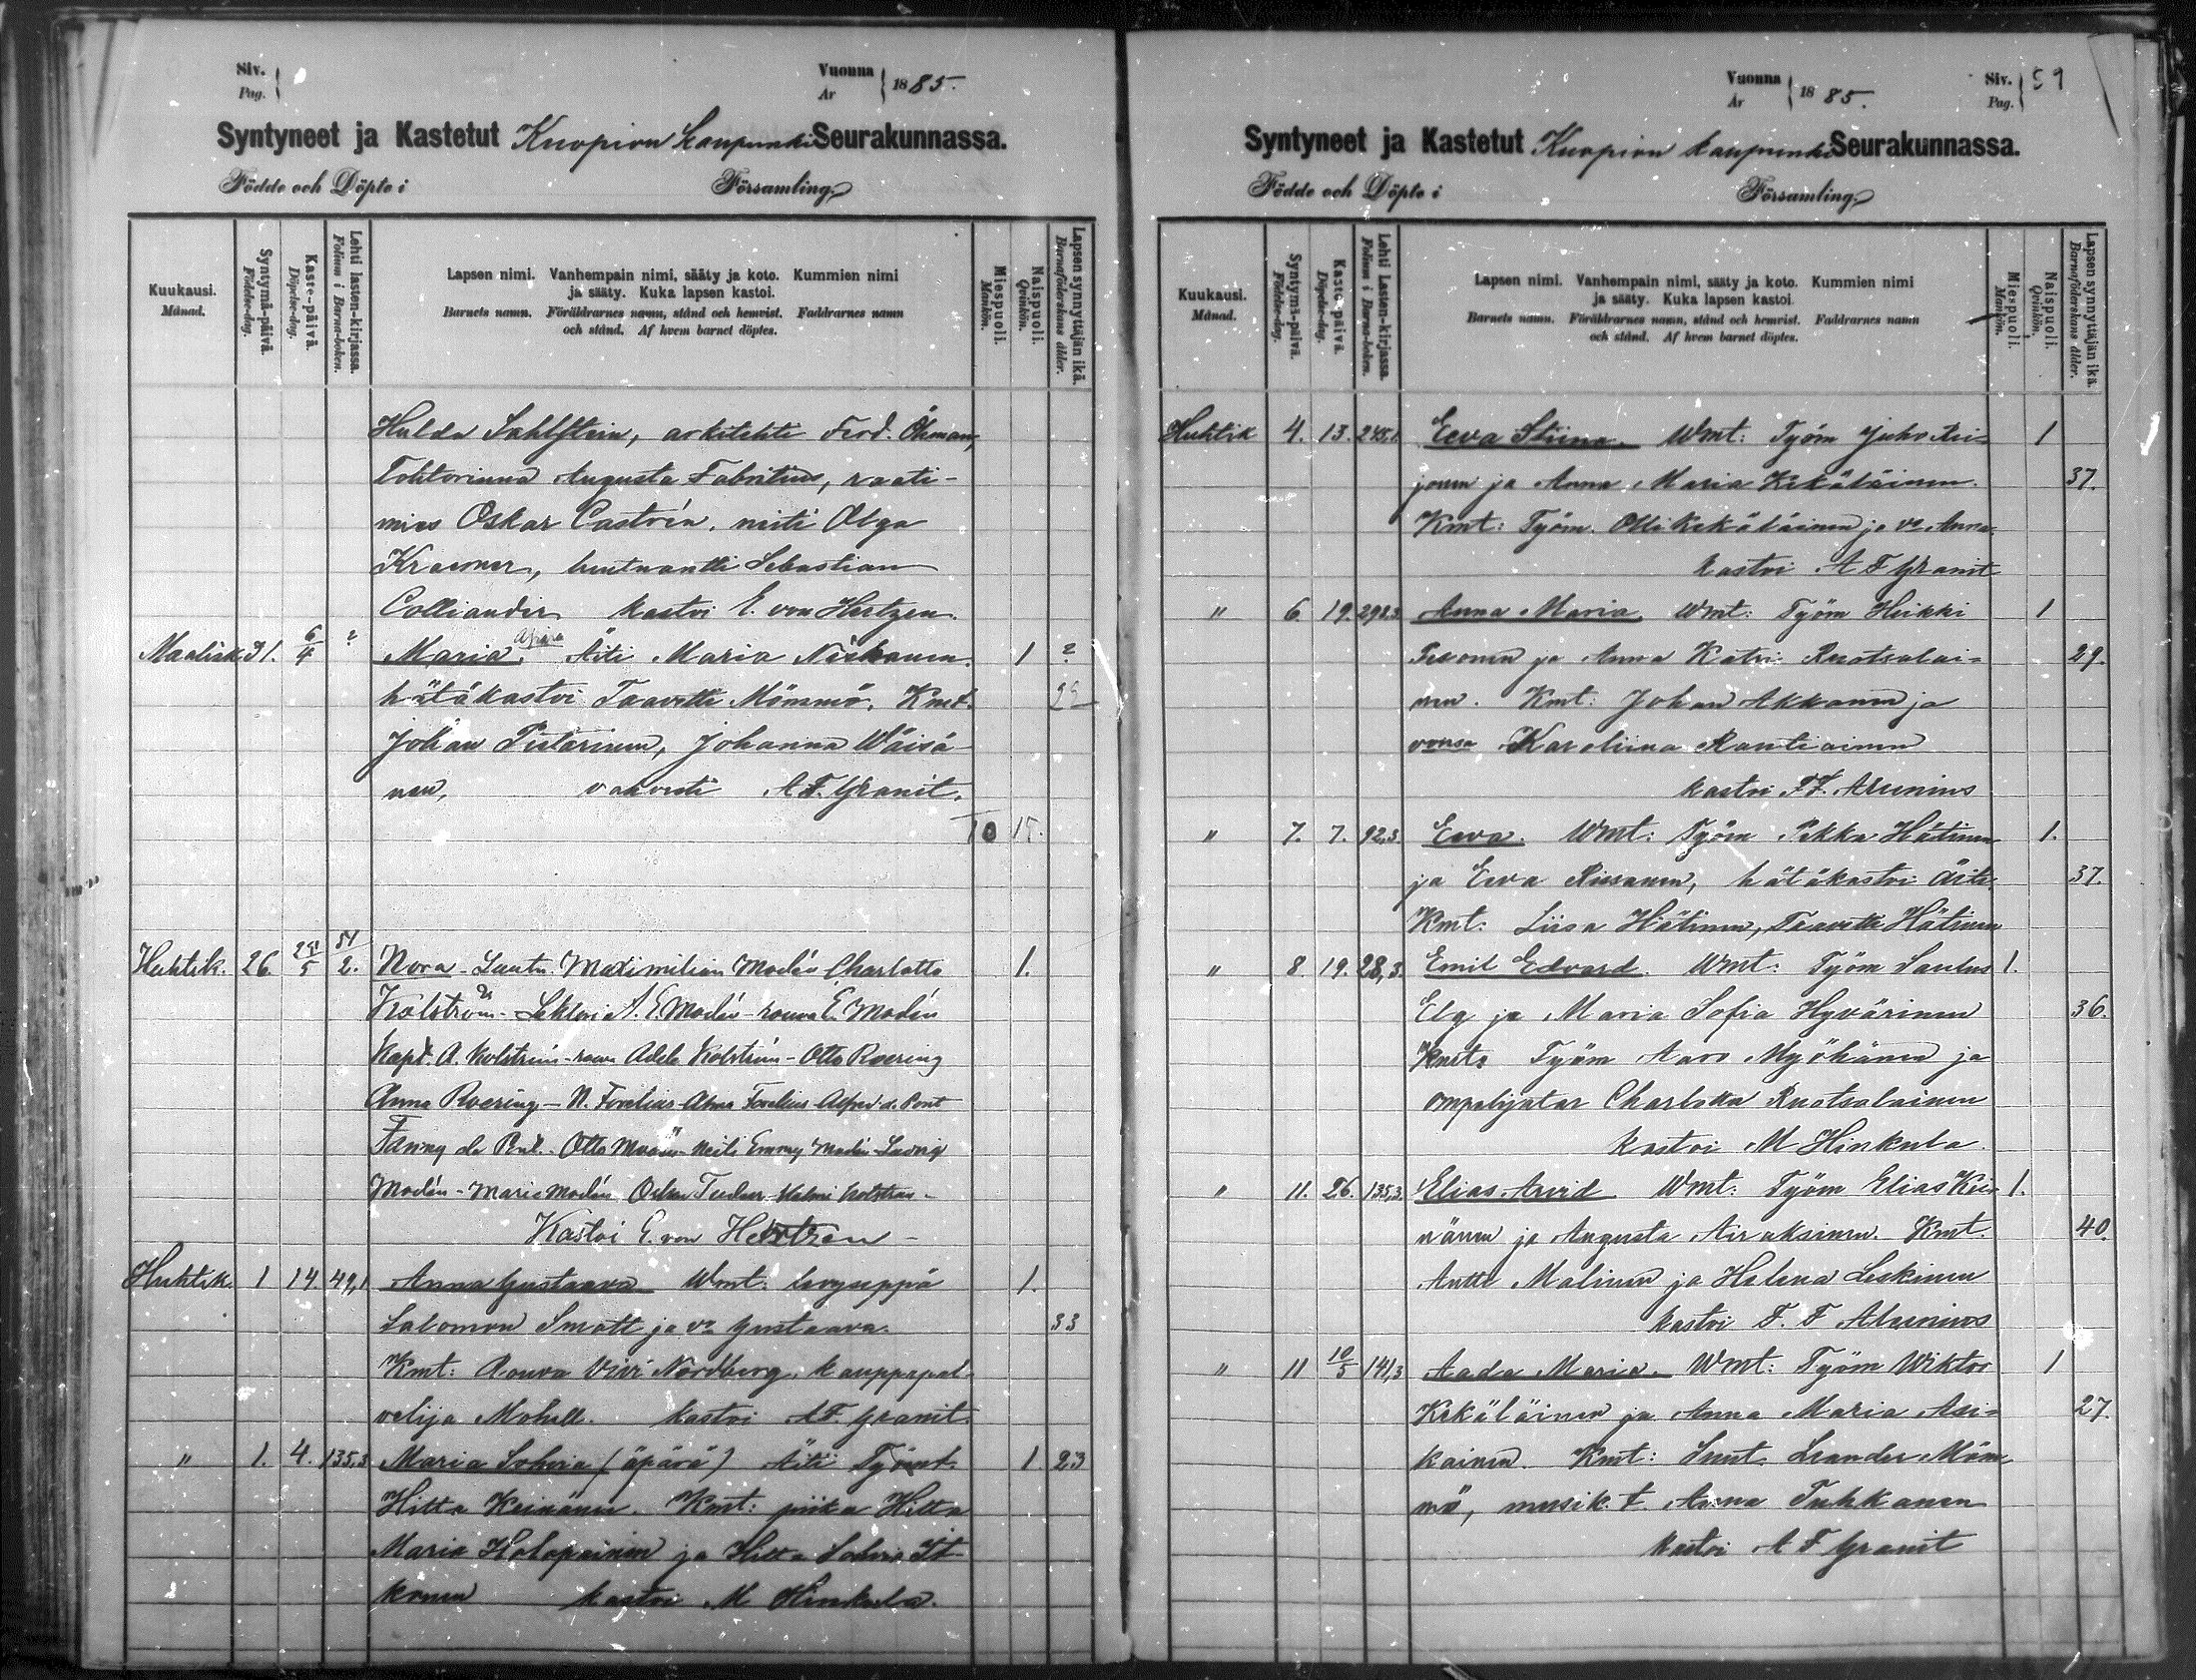 Siv.
Pag.
Vuonna
År
1885.
Syntyneet ja Kastetut Kuopion kaupunki Seurakunnassa.
Födde och Döpte i Församling.
Kuukausi.
Månad.
Syntymä-päivä.
Födelse-dag.
Kaste-päivä.
Döpelse-dag.
Lehti lasten-kirjassa.
Folium i Barna-boken.
Lapsen nimi. Vanhempain nimi, sääty ja koto. Kummien nimi
ja sääty. Kuka lapsen kastoi.
Barnets namn. Föräldrarnes namn, stånd och hemvist. Faddrarnes namn
och stånd. Af hvem barnet döptes.
Miespuoli.
Mankön.
Naispuoli.
Qvinkön.
Lapsen synnyttäjän ikä.
Barnaföderskans ålder.
Hulda Sahlstein, arkitehti Ferd. Öhman,
Tohtorinna Augusta Fabritius, raati-
mies Oskar Castrén, neiti Olga
Kraemer, luutnantti Sebastian
Colliander kastoi E. von Hertzen.
Maalisk. 31. 6/4 ? Maria, äpärä Äiti Maria Niskanen. 1 ?
hätäkastoi Taavetti Mömmö. Kmt.
Johan Pietarinen, Johanna Wäisä-
nen, vahvisti A F. Granit.
10 15.
Huhtik. 26. 24/5 54/2. Nora - Luutn. Maximilian Modén Charlotta 1.
Kolström - Lektori A. E. Modén - rouva E. Modén
Kapt. A. Kolström - rouva Adele Kolström - Otto Roering
Anna Roering - N. Forelius - Alma Forelius - Alfred de Pont
Fanny de Pont - Otto Modén - Neiti Emmy Modén - Ludvig
Modén - Marie Modén
Kastoi E. von Hertzen -
Huhtik. 1 14. 49,1 Anna Gustaava Wmt. levyseppä 1.
Salomon Smatt ja vo Gustaava. 33
Kmt: Rouva Vivi Nordberg, kauppapal-
velija Mohell. kastoi A F. Granit.
" 1. 4. 135,3 Maria Sohvia (äpärä) Äiti Työmt. 1. 23
Hitta Keinänen. Kmt: piika Hitta
Maria Holopainen ja Hitta Sohvia It-
konen kastoi M Hinkula.
Vuonna
År
1885.
Siv.
Pag.
59
Syntyneet ja Kastetut Kuopion kaupunki Seurakunnassa.
Födde och Döpte i Församling.
Kuukausi.
Månad.
Syntymä-päivä.
Födelse-dag.
Kaste-päivä.
Döpelse-dag.
Lehti Lasten-kirjassa.
Folium i Barna-boken.
Lapsen nimi. Vanhempain nimi, sääty ja koto. Kummien nimi
ja sääty. Kuka lapsen kastoi.
Barnets namn. Föräldrarnes namn, stånd och hemvist. Faddrarnes namn
och stånd. Af hvem barnet döptes.
Miespuoli.
Mankön.
Naispuoli.
Qvinkön.
Lapsen synnyttäjän ikä.
Barnaföderskans ålder.
Huhtik 4. 13. 245,1 Eeva Stiina. Wmt: Työm Juho 1
jonen ja Anna Maria Kekäläinen. 37.
Kmt: Työm. Olli Kekäläinen ja vo Anna.
kastoi A F Granit
" 6 19. 298,3 Anna Maria, Wmt: Työm Heikki 1
ja Anna Katri Ruotsalai- 29.
nen. Kmt: Johan Akkanen ja
vonsa Karoliina Rantiainen
kastoi F F. Alunius
" 7. 7. 92,3 Eeva. Wmt: Työm Pekka Hätinen 1.
ja Eeva Rissanen, hätäkastoi äiti. 37.
Kmt: Liisa Hätinen, Taavetti Hätinen
" 8. 19. 28,3. Emil Edvard. Wmt: Työm Saulus 1.
Elg ja Maria Sofia Hyvärinen 36.
Kmts Työm Aaro Myöhänen ja
ompelijatar Charlotta Ruotsalainen
kastoi M Hinkula.
" 11. 26. 135,3. Elias Arvid Wmt: Työm Elias Kei- 1.
nänen ja Augusta Airaksinen. Kmt. 40.
Antti Malinen ja Helena Leskinen
kastoi F. F Alunius
" 11 10/5 141,3 Aada Maria. Wmt: Työm Wiktor 1
Kekäläinen ja Anna Maria Asi- 27.
kainen. Kmt: Suut. Leander Möm-
mö, musik. t. Anna Tuhkanen
kastoi A F Granit